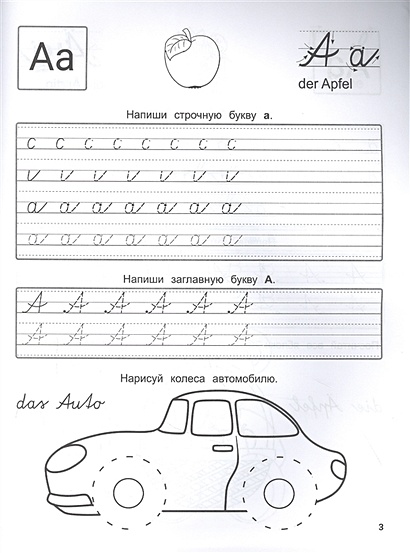 Aa
A a
der Apfel
Напиши строчную букву а.
c c c c c c c c
и и и и и и и и
a a a a a a a a
a a a a a a a a
Напиши заглавную букву А.
A A A A A A
A A A A A A
Нарисуй колеса автомобилю.
das Auto
3